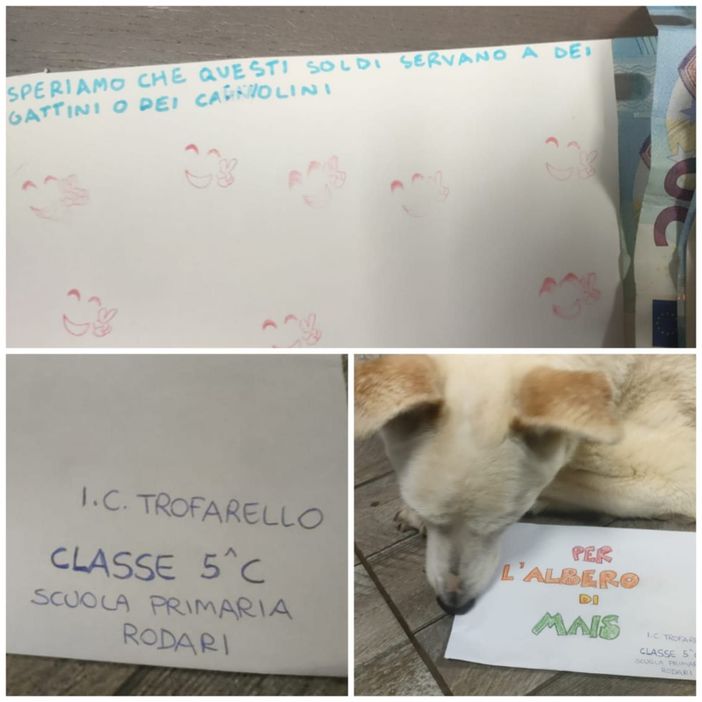 SPERIAMO CHE QUESTI SOLDI SERVANO A DEI
GATTINI O DEI
I.C. TROFARELLO
CLASSE 5^C
SCUOLA PRIMARIA
RODARI
PER
L'ALBERO
DI
MAIS
I.C TROFAR
CLASSE 5^C
SCUOLA PRIMA
RODARI